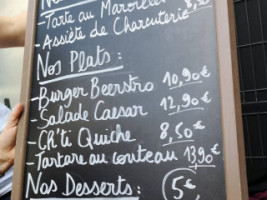 - Tarte au Maroilles 8,50€
- Assiète de Charcuterie
Nos Plats :
- Burger Beerstro 10,90€
- Salade Caesar 12,90€
- Ch'ti Quiche 8,50€
- Tartare au couteau 13,90€
Nos Desserts : 5€